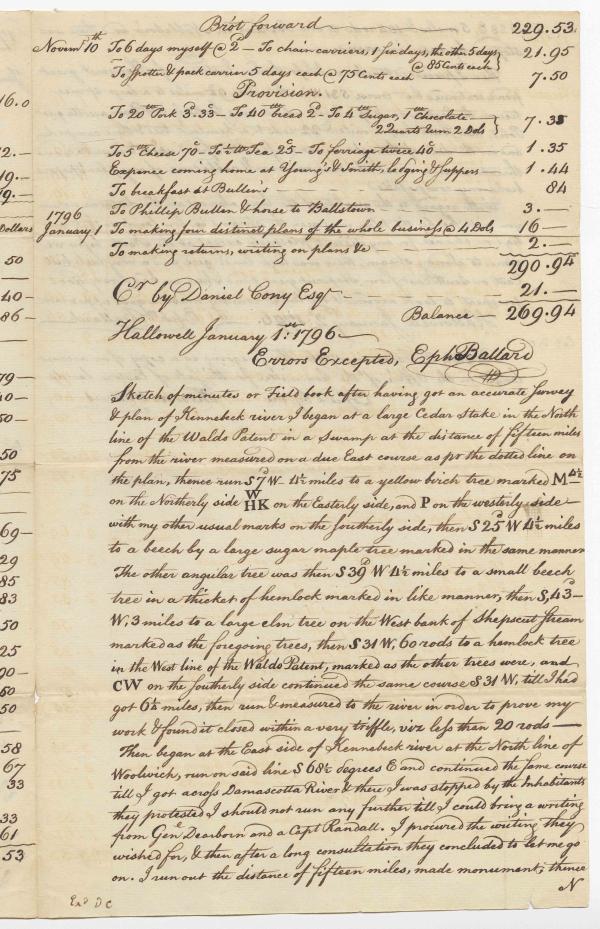 Bro't forward 229.53
Novem.r 10th To 6 days myself @ 2D — To chain carriers, 1 six days, the other 5 days } @ 85 Cents each 21.95
To Spotter & pack carrier 5 days each @ 75 Cents each 7.50
Provision.
To 20 lb Pork 3D.33 — To 40 lb bread 2D — To 4 lb Sugar, 1 lb Chocolate
2 Quarts Rum 2 Dols } 7.35
To 5 lb Cheese 70c — To ½ lb Tea 25c — To ferriage twice 40c 1.35
Expence coming home at Young's & Smith, lodging & suppers 1.44
To breakfast at Bullen's 84
1796 To Phillip Bullen & horse to Ballstown 3.—
January 1 To making four distinct plans of the whole business @ 4 Dols 16—
To making returns, writing on plans &c 2.—
290.94
Cr by Daniel Cony Esqr 21.—
Balance — 269.94
Hallowell January 1st: 1796
Errors Excepted, Eph Ballard
Sketch of minutes or Field book after having got an accurate survey
& plan of Kennebek river I began at a large Cedar Stake in the North
line of the Waldo Patent in a Swamp at the distance of fifteen miles
from the river measured on a due East course as pr the dotted line on
the plan, thence run S 7D W 4½ miles to a yellow birch tree marked M 4½
on the Northerly side W HK on the Easterly side, and P on the westerly side
with my other usual marks on the southerly side, then S 25D W 4½ miles
to a beech by a large sugar maple tree marked in the same manner
The other angular tree was then S 39D W 4½ miles to a small beech
tree in a thicket of hemlock marked in like manner, then S, 43D
W, 3 miles to a large elm tree on the West bank of Shepscut stream
marked as the foregoing trees, then S 31 W, 60 rods to a hemlock tree
in the West line of the Waldo Patent, marked as the other trees were, and
CW on the southerly side continued the same course S 31 W, till I had
got 6½ miles, then run & measured to the river in order to prove my
work & found it closed within a very triffle, viz less than 20 rods —
Then began at the East side of Kennebek river at the North line of
Woolwich, run on said line S 68½ degrees E and continued the same course
till I got across Damascotta River & there I was stopped by the Inhabitants
they protested I should not run any further till I could bring a writing
from Genl Dearborn and a Capt Randall. I procured the writing they
wished for, & then after a long consultation they concluded to let me go
on. I run out the distance of fifteen miles, made monument; thence
N
Exd DC
16.0
2.—
19.—
9.—
Dollars
50
40—
86—
79—
40—
50—
50
75
69—
29
85
83
50
25
90—
50
50
58
67
33
33
61
53